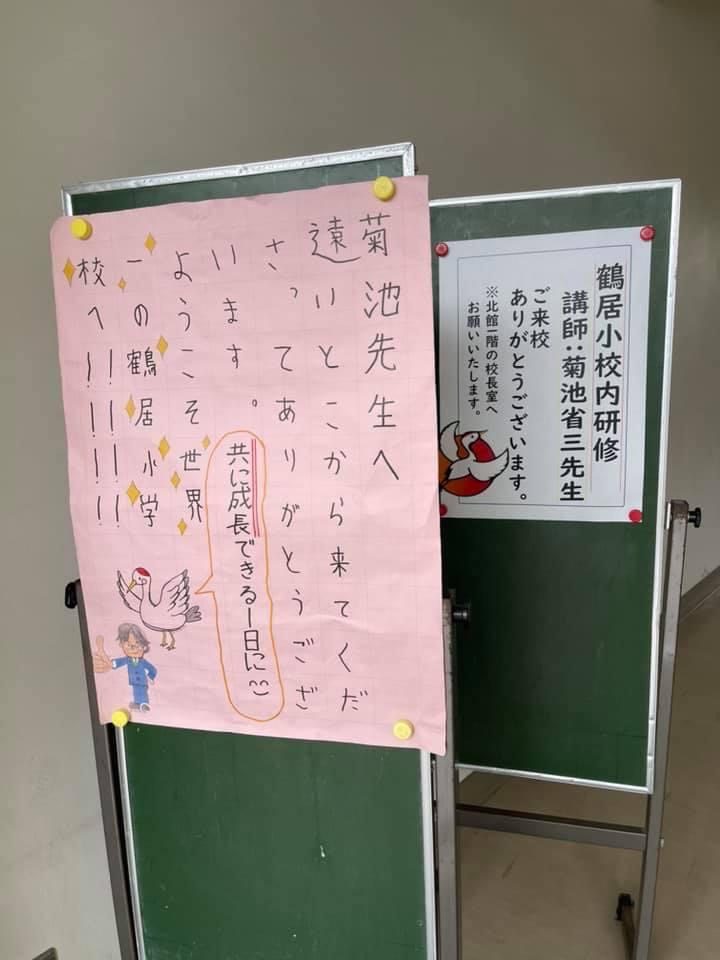 菊池先生へ
遠いとこから来てくだ
さってありがとうござ
います。
ようこそ世界
一の鶴居小学
校へ！！！！！！！！
共に成長できる1日に
鶴居小校内研修
講師：菊池省三先生
ご来校
ありがとうございます。
※北館一階の校長室へ
お願いいたします。